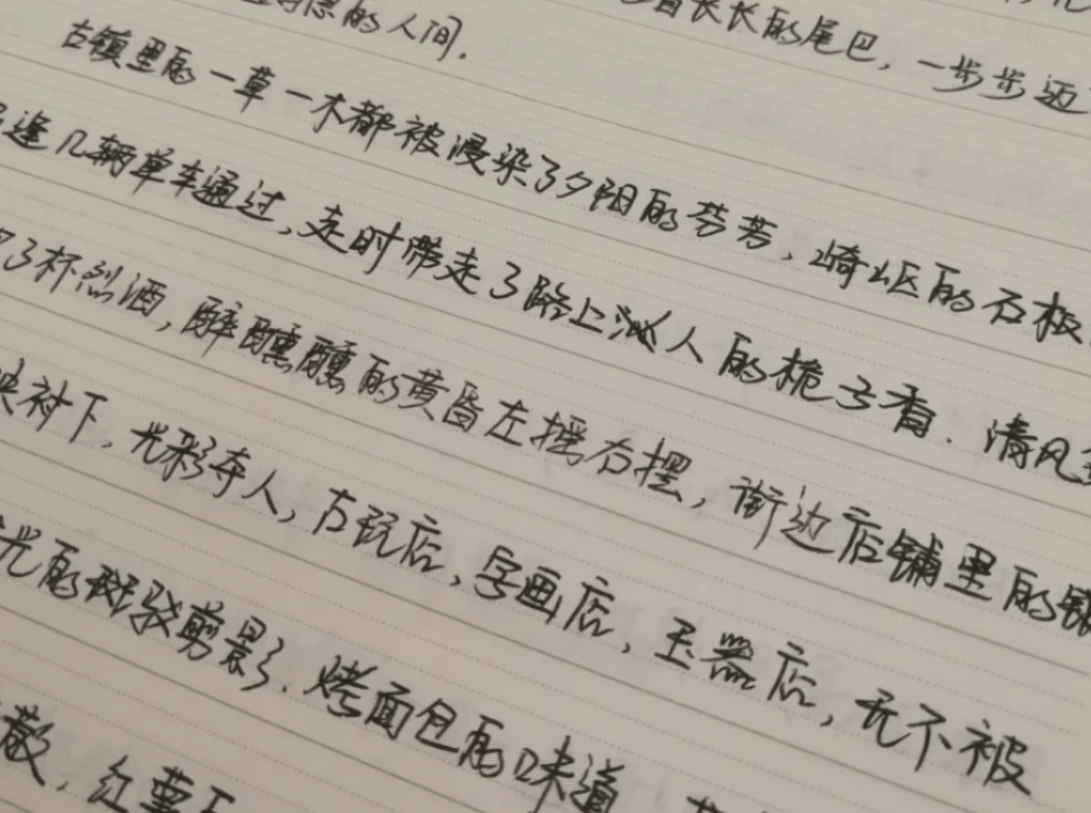 长长的尾巴，一步步迈
的人间.
古镇里的一草一木都被浸染了夕阳的芬芳，崎岖的石板
逢几辆单车通过，走时带走了路上沁人的栀子香．清风
了杯烈酒，醉醺醺的黄昏左摇右摆，街边店铺里的
衬下，光彩夺人，古玩店，字画店，玉器店，无不被
光的斑驳剪影．烤面包的味道
散，红薯